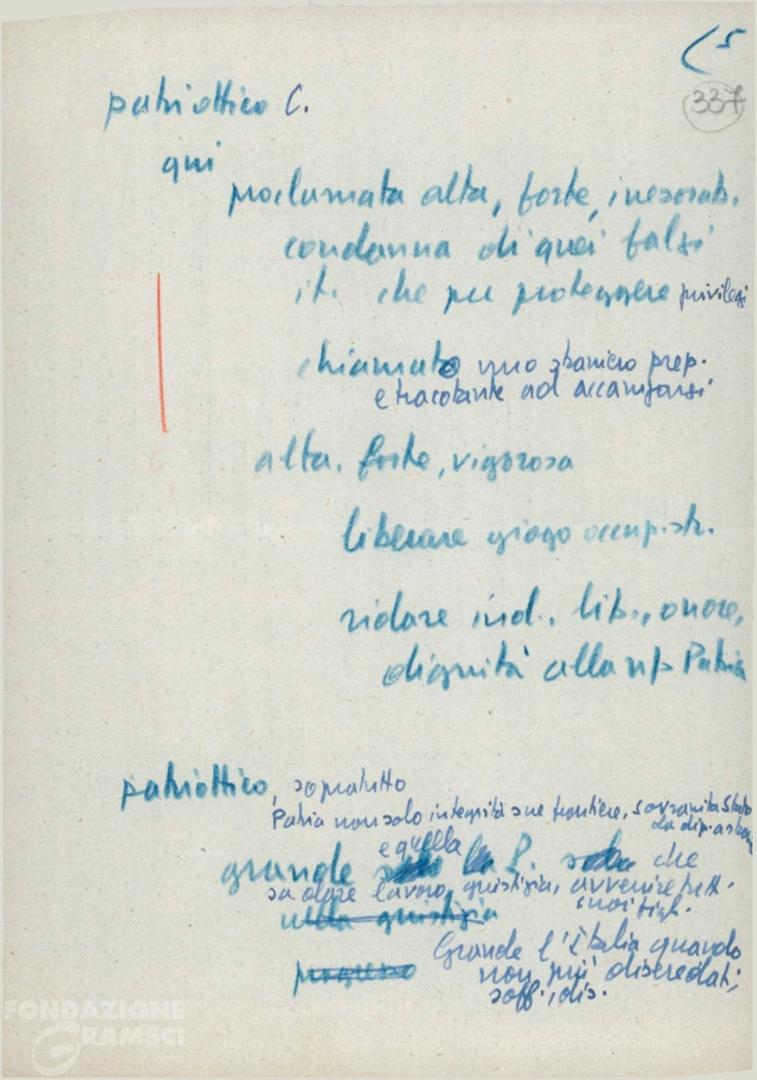 5
337
patriottico C.
qui
proclamata alta, forte, inesorab.
condanna di quei falsi
it. che per proteggere privilegi
chiamato uno straniero prep.
e tracotante ad accamparsi
alta, forte, vigorosa
liberare giogo occup. str.
ridare ind., lib., onore,
dignità alla ns Patria
patriottico, sopratutto
Patria non solo integrità sue frontiere, sovranità Stato
da dip. a stran
e quella
grande la P. che
sa dare lavoro, giustizia, avvenire tutt.
suoi figli.
nella giustizia
progresso
Grande l'Italia quando
non più diseredati,
soff., dis.
FONDAZIONE
GRAMSCI